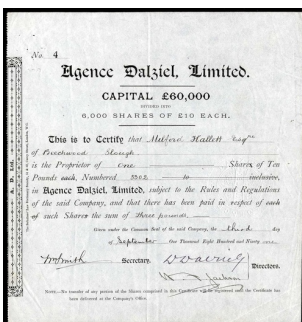 No. 4
Agence Dalziel, Limited.
CAPITAL £60,000
DIVIDED INTO
6,000 SHARES OF £10 EACH.
This is to Certify that Milford Hallett Esqre
of Beechwood Slough
is the Proprietor of One Shares of Ten
Pounds each, Numbered 5502 to inclusive,
in Agence Dalziel, Limited, subject to the Rules and Regulations
of the said Company, and that there has been paid in respect of each
of such Shares the sum of three pounds
Given under the Common Seal of the said Company, the third day
of September One Thousand Eight Hundred and Ninety one
WSmith Secretary.
Directors.
NOTE.—No transfer of any portion of the Shares comprised in this Certificate will be registered until the Certificate has
been delivered at the Company's Office.